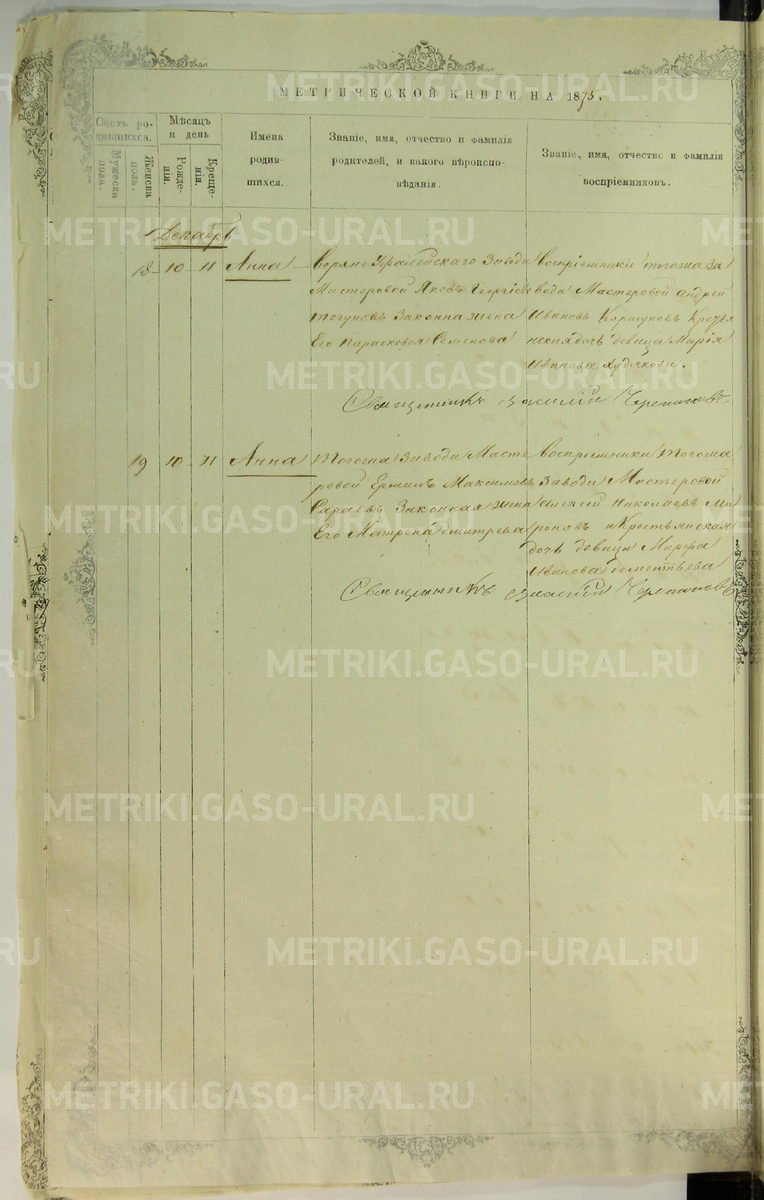 МЕТРИЧЕСКОЙ КНИГИ НА 1875.
Счетъ родившихся.
Мужеска пола.
Женска пола.
Мѣсяцъ и день
Рожденія.
Крещенія.
Имена родившихся.
Званіе, имя, отчество и фамилія родителей, и какого вѣроисповѣданія.
Званіе, имя, отчество и фамилія воспріемниковъ.
Декабрь
18 10 11 Анна
Завода
Мастеровой Яковъ Георгіевъ
Законная жена
Его Парасковья Семенова
Воспріемники тогожа За
вода Мастеровой Андрей
Ивановъ Коршуновъ Кресьян
ская дочь девица Марія
Иванова Худякова.
Священникъ Василій Черепановъ
19 10 11 Анна
Тогожа Завода Масте
ровой Ермилъ Максимовъ
Законная жена
Его Матрона Дмитрева
Воспріемники Тогожа
Завода Мастеровой
Алексей Николаевъ Ми
роновъ и Крестьянская
дочь девица Марфа
Иванова Дементьева
Священникъ Василій Черепановъ
METRIKI.GASO-URAL.RU